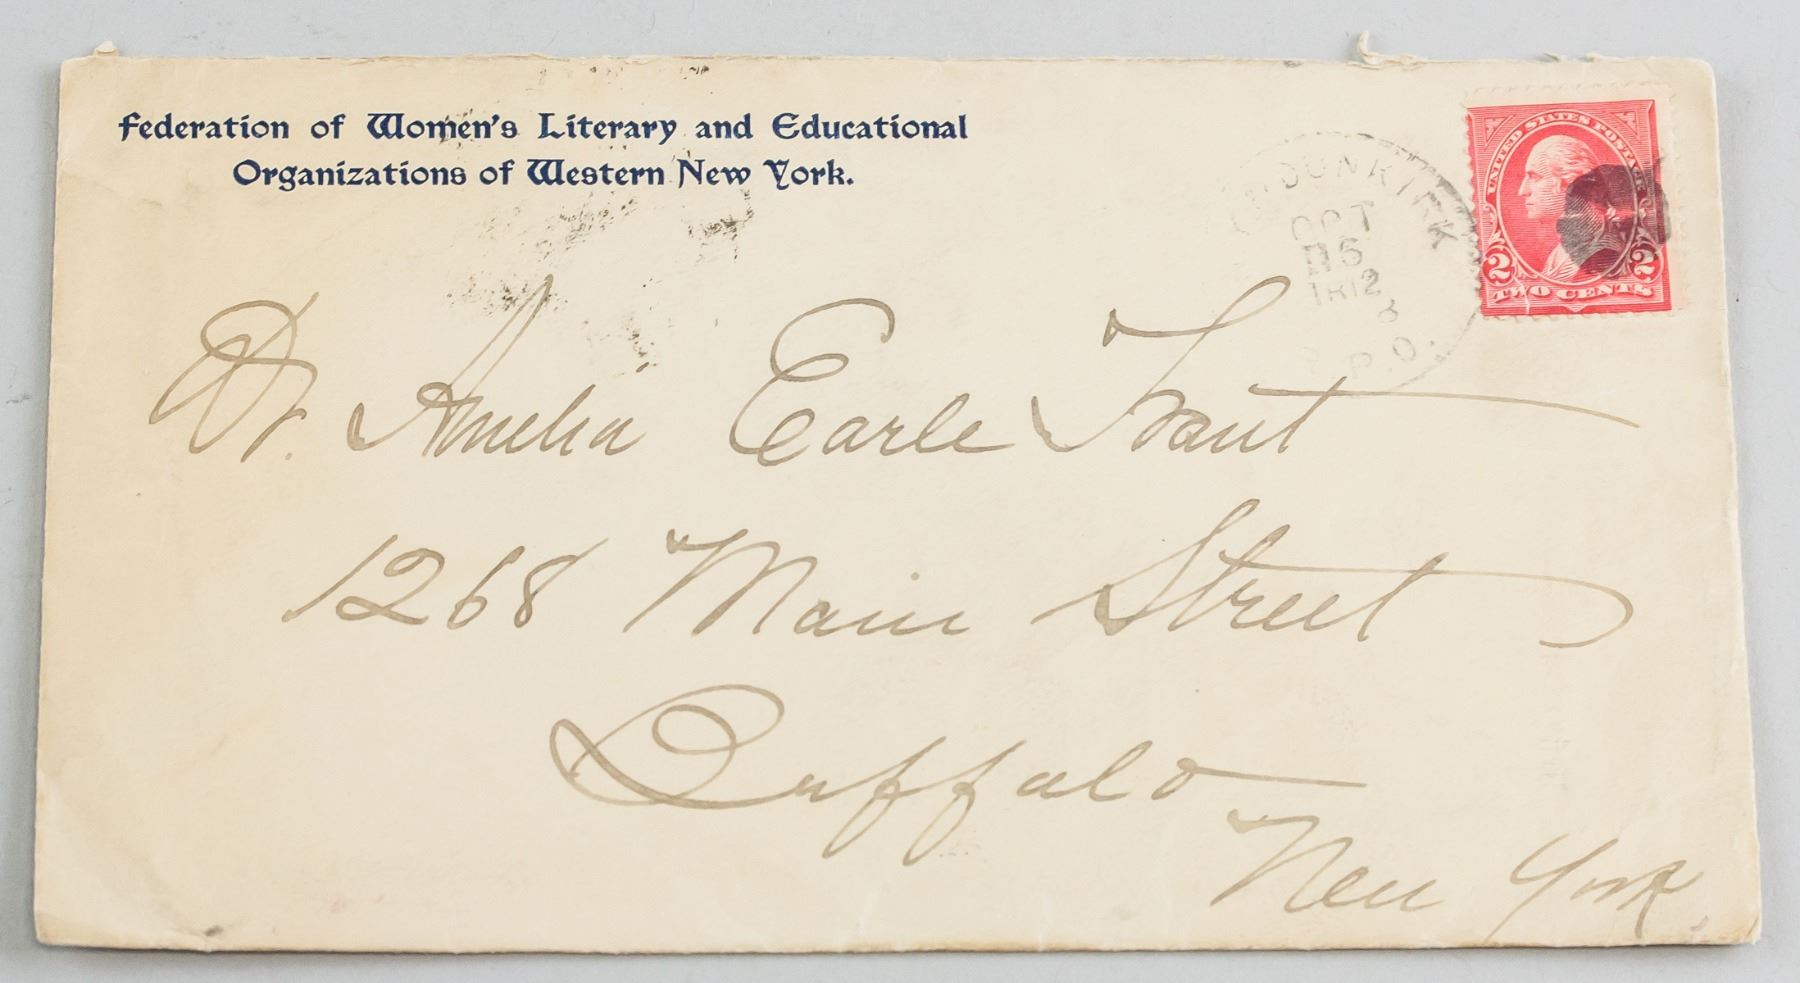 Federation of Women's Literary and Educational
Organizations of Western New York.
DUNKIRK
OCT
16
TR12
R.P.O.
UNITED STATES POSTAGE
2 2
TWO CENTS
Dr. Amelia Earle Trant
1268 Main Street
Buffalo
New York.